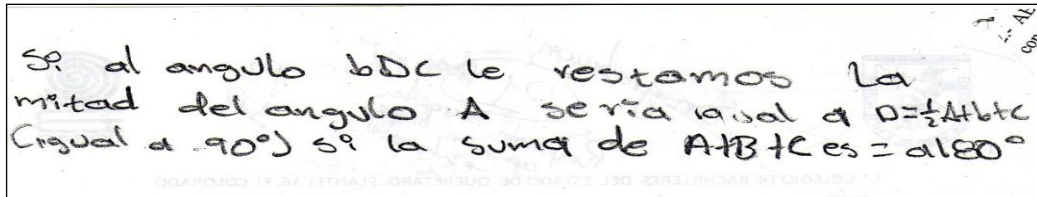 Si al angulo bDC le restamos La
mitad del angulo A seria igual a D=½A+b+c
(igual a 90°) si la suma de A+B+C es = a180°
COLEGIO DE BACHILLERES DEL ESTADO DE QUERÉTARO PLANTEL 16, EL COLORADO